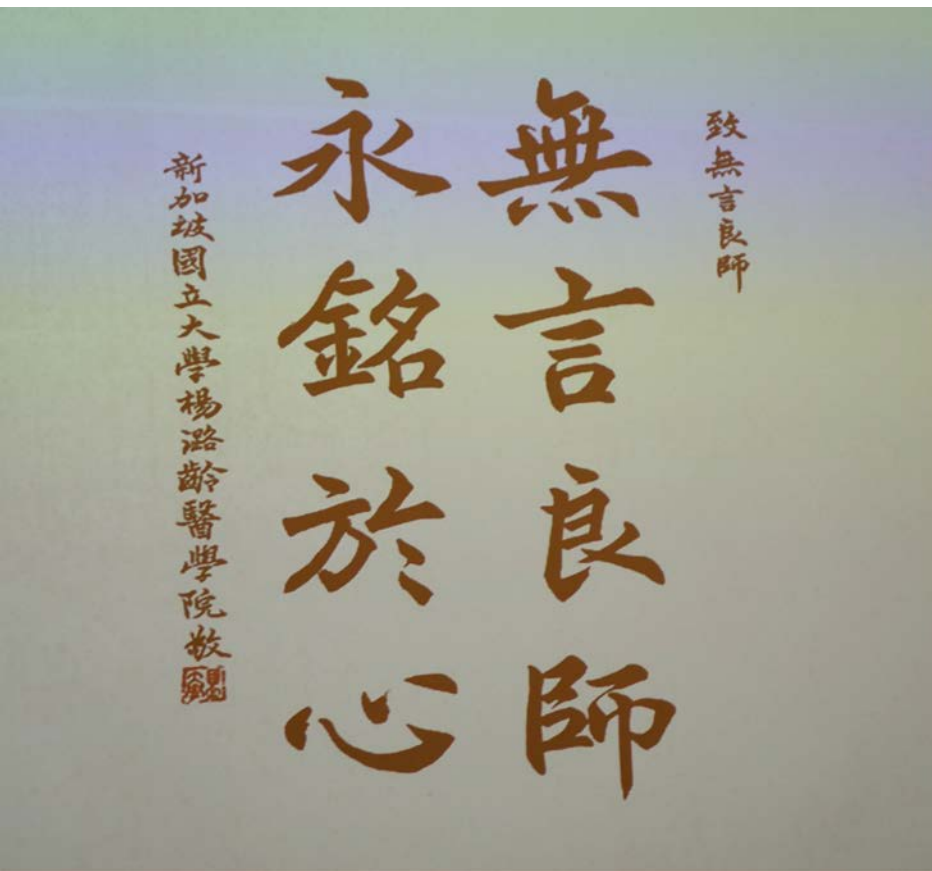 致無言良師
無言良師
永銘於心
新加坡國立大學楊潞齡醫學院敬